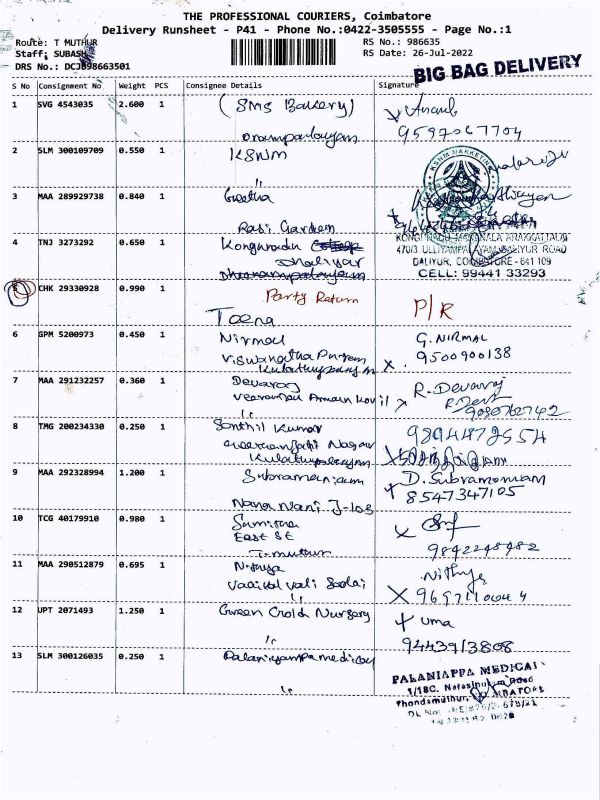 THE PROFESSIONAL COURIERS, Coimbatore
Delivery Runsheet - P41 - Phone No.:0422-3505555 - Page No.:1
Route: T MUTHUR
RS No.: 986635
Staff: SUBASH
RS Date: 26-Jul-2022
DRS No.: DCJB98663501
BIG BAG DELIVERY
S No Consignment No Weight PCS Consignee Details Signature
1 SVG 4543035 2.600 1 (SMS Bakery) Anand
9597067704
2 SLM 300109709 0.550 1 KSNM
KSNM MARKETING
3 MAA 289929738 0.840 1 Geetha
Rasi Garden
4 TNJ 3273292 0.650 1 Kongunadu
470/3 ULLIYAMPALAYAM, DALIYUR ROAD
DALIYUR, COIMBATORE-641 109
CELL: 99441 33293
5 CHK 29330928 0.990 1 Party Return P/R
6 GPM 5200973 0.450 1 Nirmal G. NIRMAL
Viswanatha Puram 9500900138
Kulathupalayam
7 MAA 291232257 0.360 1 Devaraj R. Devaraj
Veeramatti Amman Kovil
8 TMG 200234330 0.250 1 Senthil Kumar
Nagar
Kulathupalayam
9 MAA 292328994 1.200 1 Subramaniam D. Subramaniam
8547347105
Nana Nani J-103
10 TCG 40179910 0.980 1
East St
T. muthur 9842248482
11 MAA 290512879 0.695 1 Nithya Nithya
Vaaikal Vali Salai
12 UPT 2071493 1.250 1 Green Gold Nursery Uma
9443913808
13 SLM 300126035 0.250 1 Palaniyappa medical
PALANIAPPA MEDICAL